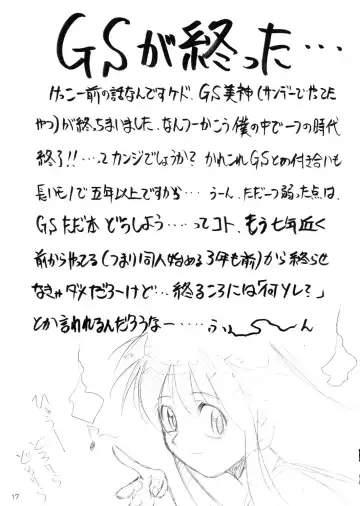 GSが終った…
けっこー前の話なんですケド、GS美神(サンデーでやってた
やつ)が終っちまいました、なんつーかこう僕の中で一つの時代
終了!! …ってカンジでしょうか? かれこれGSとの付き合いも
長いもので五年以上ですから… うーん、ただ一つ弱った点は、
GSただ本 どうしよう…ってコト、もう七年近く
前からやってる(つまり同人始める3年も前)から終らせ
なきゃダメだろーけど… 終るころには「何ソレ?」
とか言われるんだろうなー…… ふぅ〜ん
ひゅうー
17